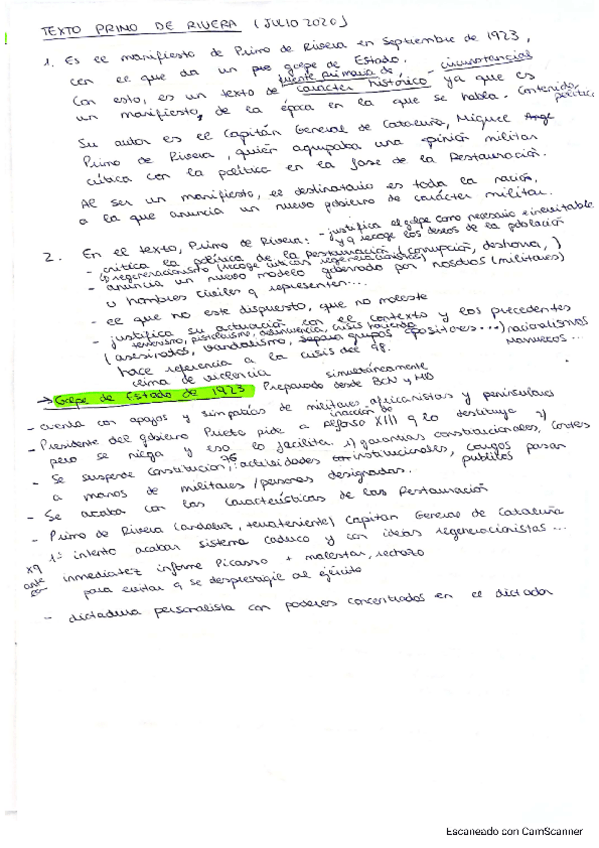 TEXTO PRIMO DE RIVERA (JULIO 2020)
1. Es el manifiesto de Primo de Rivera en Septiembre de 1923,
con el que da un golpe de Estado.
fuente primaria de - circunstancial
Con esto, es un texto de carácter histórico ya que es
un manifiesto, de la época en la que se habla. Contenido,
política
Su autor es el Capitán General de Cataluña, Miguel
Primo de Rivera, quién agrupaba una opinión militar
crítica con la política en la fase de la Restauración.
Al ser un manifiesto, el destinatario es toda la nación,
a la que anuncia un nuevo gobierno de carácter militar.
- justifica el golpe como necesario e inevitable
2. En el texto, Primo de Rivera: y q recoge los deseos de la población
- critica la política de la Restauración (corrupción, deshonra, )
regeneracionismo (recoge críticas regeneracionistas)
- anuncia un nuevo modelo gobernado por nosotros (militares)
u hombres civiles q representen...
- el que no este dispuesto, que no moleste
- justifica su actuación con el contexto y los precedentes
terrorismo, pistolerismo, delincuencia, crisis hacienda
(asesinatos, vandalismo, separa grupos opositores...) nacionalismos
Marruecos...
hace referencia a la crisis del 98.
clima de violencia simultáneamente
→ Golpe de Estado de 1923 Preparado desde BCN y MD
- cuenta con apoyos y simpatías de militares africanistas y peninsulares
inacción de
- Presidente del gobierno Prieto pide a Alfonso XIII q lo destituye y
pero se niega y eso lo facilita. y garantías constitucionales, Cortes
- Se suspende Constitución, 76 actividades institucionales, cargos pasan
públicos
a manos de militares / personas designadas.
- Se acaba con las características de las Restauración
- Primo de Rivera (andaluz, terrateniente) Capitán General de Cataluña
1º intento acabar sistema caduco y con ideas regeneracionistas...
xq
ante
inmediatez informe Picasso + malestar, rechazo
para evitar q se desprestigie al ejército
- dictadura personalista con poderes concentrados en el dictador
Escaneado con CamScanner